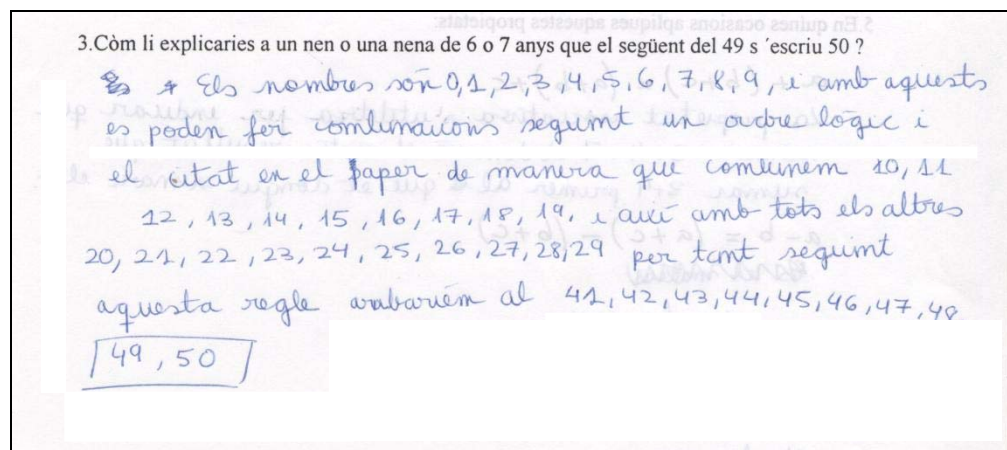 3.Còm li explicaries a un nen o una nena de 6 o 7 anys que el següent del 49 s ´escriu 50 ?
* Els nombres són 0,1,2,3,4,5,6,7,8,9, i amb aquests
es poden fer combinacions seguint un ordre lògic i
el citat en el paper de manera que combinem 10, 11
12, 13, 14, 15, 16, 17, 18, 19, i així amb tots els altres
20, 21, 22, 23, 24, 25, 26, 27, 28, 29 per tant seguint
aquesta regle arribariem al 41, 42, 43, 44, 45, 46, 47, 48
49, 50